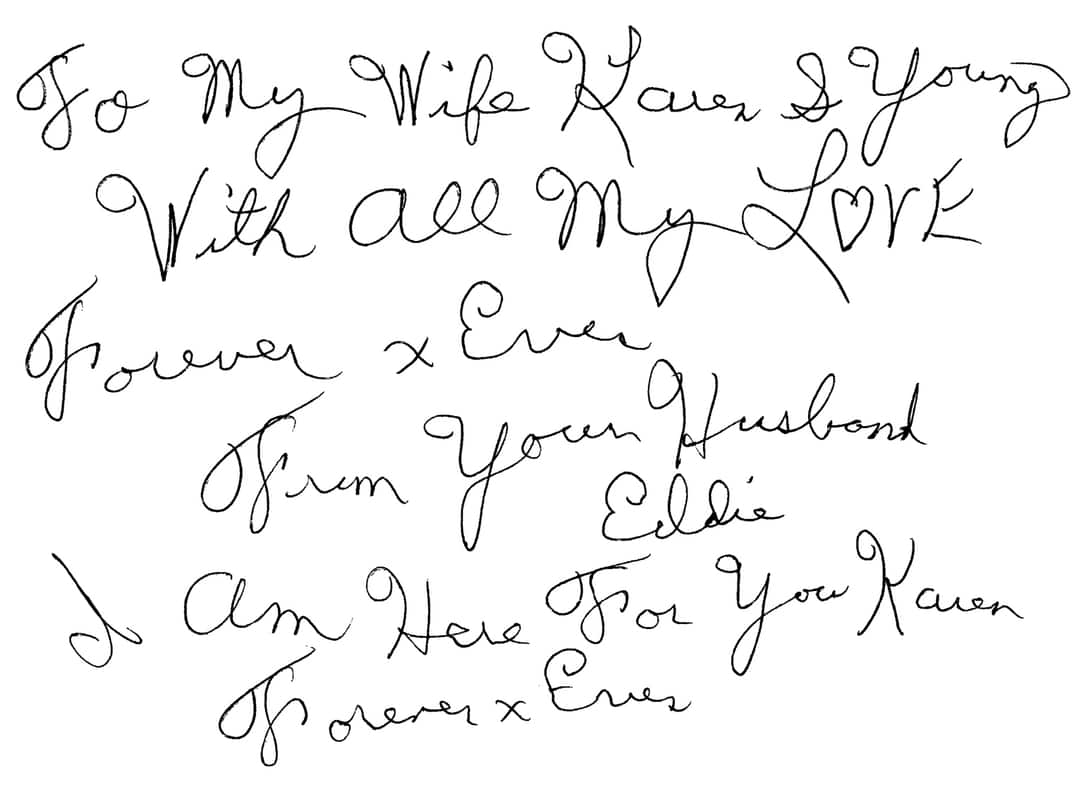 To My Wife Karen S Young
With All My LOVE
Forever x Ever
From Your Husband
Eddie
I Am Here For You Karen
Forever x Ever